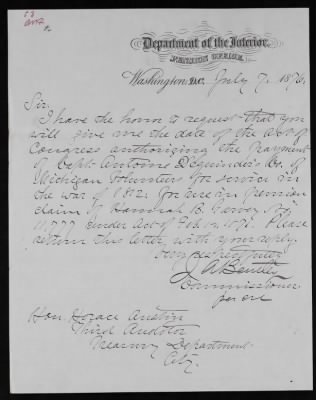 Department of the Interior,
PENSION OFFICE,
Washington, D.C. July 7, 1876.
Sir:
I have the honor to request that you
will give me the date of the act of
Congress authorizing the payment
of Capt. Antoine Dequindre's Co. of
Michigan Volunteers for service in
the war of 1812. For use in pension
claim of Hannah B.
under Act of Feb. 14, 1871. Please
return this letter with your reply.
Very respectfully
J A Bentley
Commissioner
per
Hon. Horace Austin
Third Auditor
Treasury Department
City.